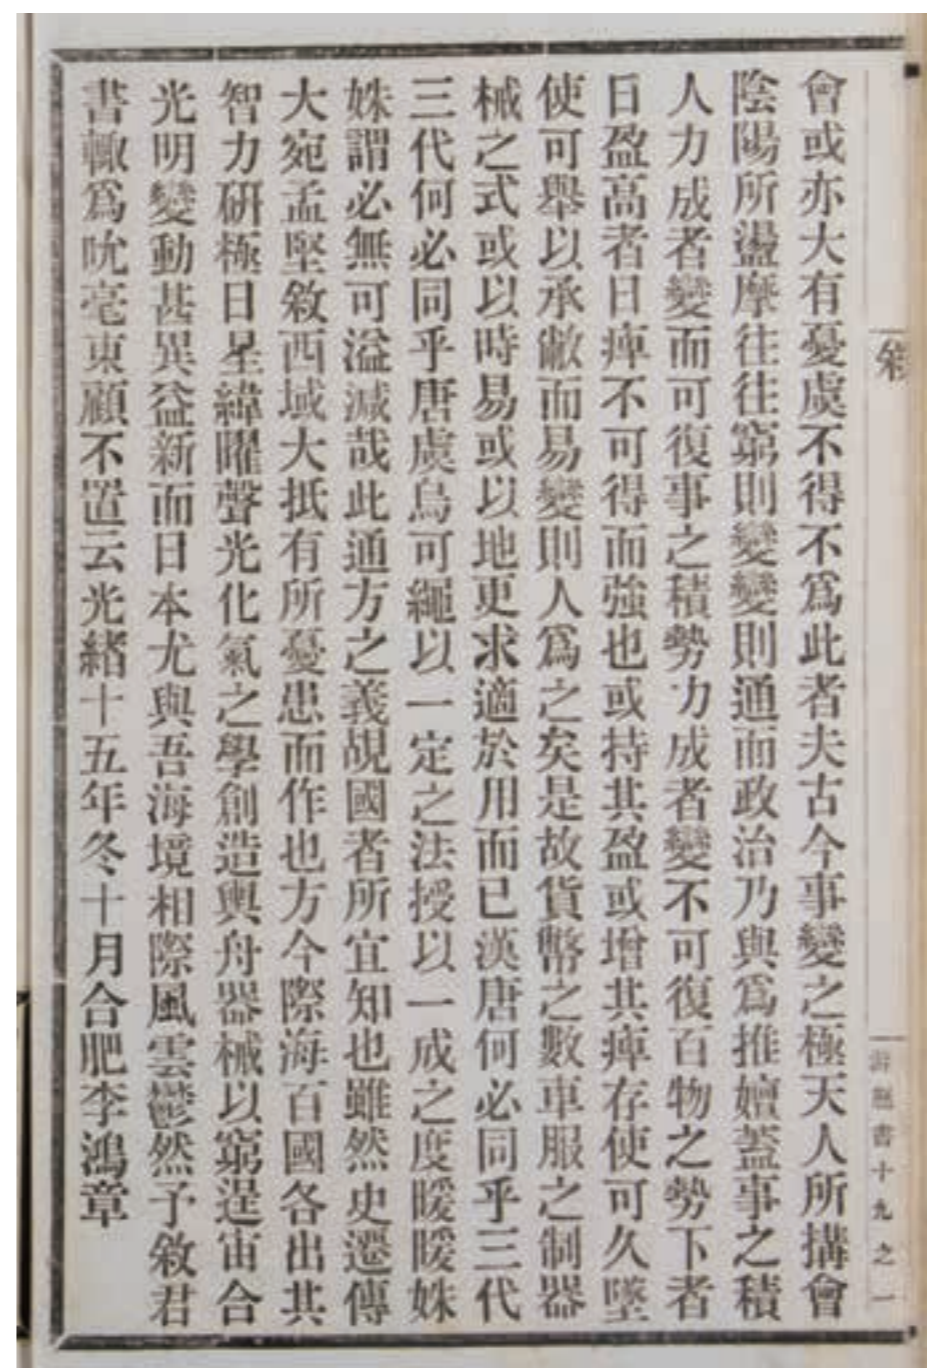 敘
游歷書十九之一
會或亦大有憂虞不得不爲此者夫古今事變之極天人所搆會
陰陽所盪摩往往窮則變變則通而政治乃與爲推嬗蓋事之積
人力成者變而可復事之積勢力成者變不可復百物之勢下者
日盈高者日痺不可得而強也或持其盈或增其痺存使可久墜
使可舉以承敝而易變則人爲之矣是故貨幣之數車服之制器
械之式或以時易或以地更求適於用而已漢唐何必同乎三代
三代何必同乎唐虞烏可繩以一定之法授以一成之度暖暖姝
姝謂必無可溢減哉此通方之義覘國者所宜知也雖然史遷傳
大宛孟堅敘西域大抵有所憂患而作也方今際海百國各出其
智力研極日星緯曜聲光化氣之學創造輿舟器械以窮逞宙合
光明變動甚異益新而日本尤與吾海境相際風雲鬱然予敘君
書輙爲吮毫東顧不置云光緒十五年冬十月合肥李鴻章